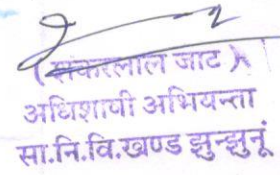 (संकरलाल जाट)
अधिशाषी अभियन्ता
सा.नि.वि.खण्ड झुन्झुनूं